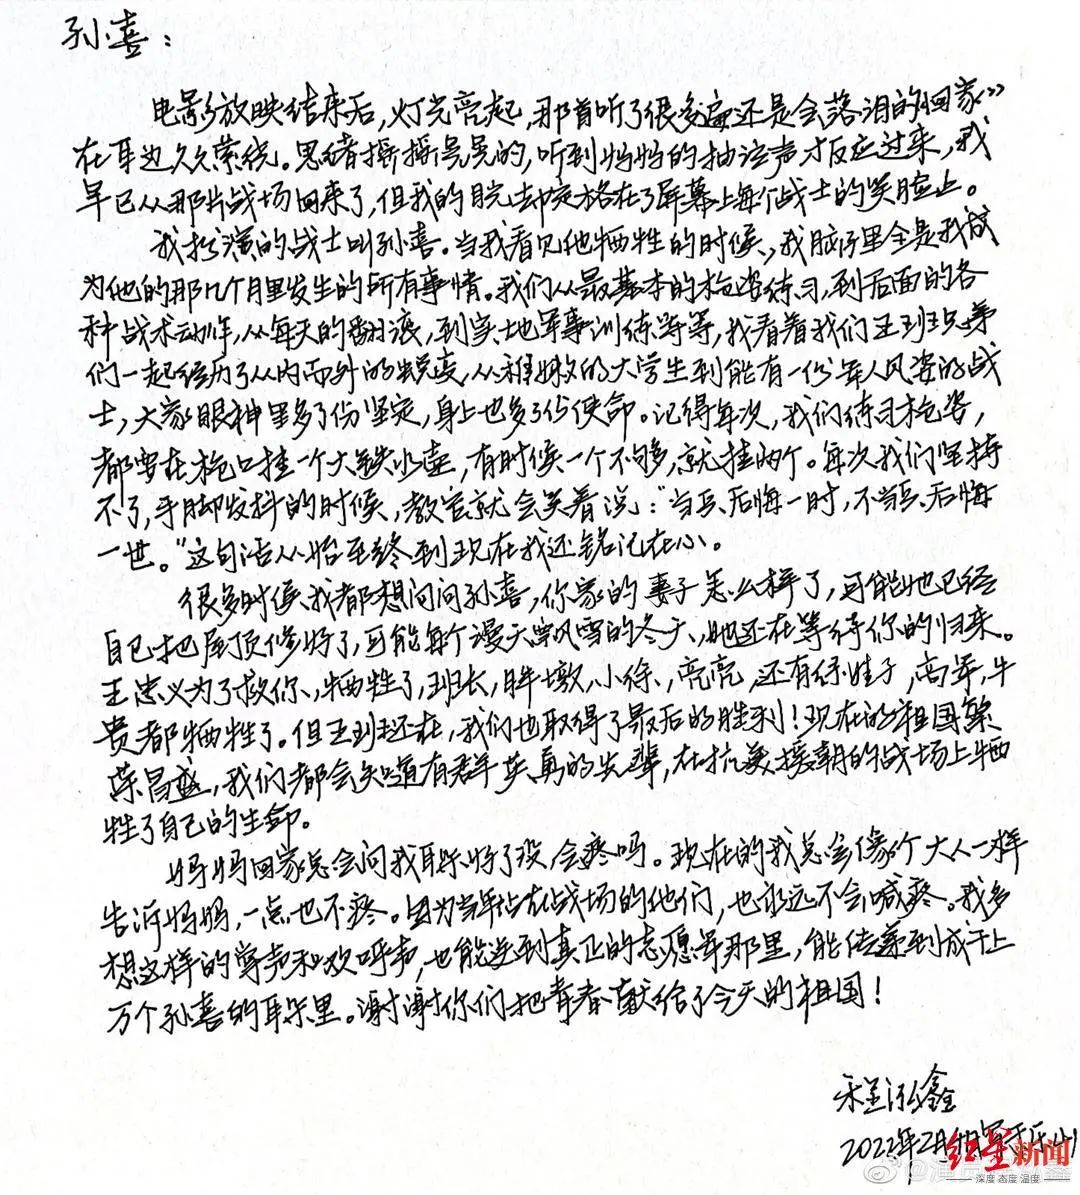 孙喜：
电影放映结束后，灯光亮起，那首听了很多遍还是会落泪的《回家》
在耳边久久萦绕。思绪摇摇晃晃的，听到妈妈的抽泣声才反应过来，我
早已从那片战场回来了，但我的脸却定格在了屏幕上每个战士的笑脸上。
我扮演的战士叫孙喜。当我看见他牺牲的时候，我脑子里全是我成
为他的那几个月里发生的所有事情。我们从最基本的枪姿练习，到后面的各
种战术动作，从每天的翻滚，到实地军事训练等等，我看着我们五班兄弟
们一起经历了从内而外的蜕变，从稚嫩的大学生到能有一份军人风姿的战
士，大家眼神里多了份坚定，身上也多了份使命。记得每次，我们练习枪姿，
都要在枪口挂一个大铁水壶，有时候一个不够，就挂两个。每次我们坚持
不了，手脚发抖的时候，教官就会笑着说：“当兵后悔一时，不当兵后悔
一世。”这句话从始至终到现在我还铭记在心。
很多时候我都想问问孙喜，你家的妻子怎么样了，可能她已经
自己把屋顶修好了，可能每个漫天风雪的冬天，她还在等待你的归来。
王忠义为了救你，牺牲了，班长，胖墩，小徐，亮亮，还有绥娃子，高军，牛
贵都牺牲了。但五班还在，我们也取得了最后的胜利！现在的祖国繁
荣昌盛，我们都会知道有群英勇的先辈，在抗美援朝的战场上牺
牲了自己的生命。
妈妈回家总会问我耳朵好了没，会疼吗。现在的我总会像个大人一样
告诉妈妈，一点也不疼。因为当年站在战场的他们，也永远不会喊疼。我多
想这样的掌声和欢呼声，也能送到真正的志愿军那里，能传递到成千上
万个孙喜的耳朵里。谢谢你们把青春献给了今天的祖国！
宋呈泓鑫
2022年2月
红星新闻
深度 态度 温度